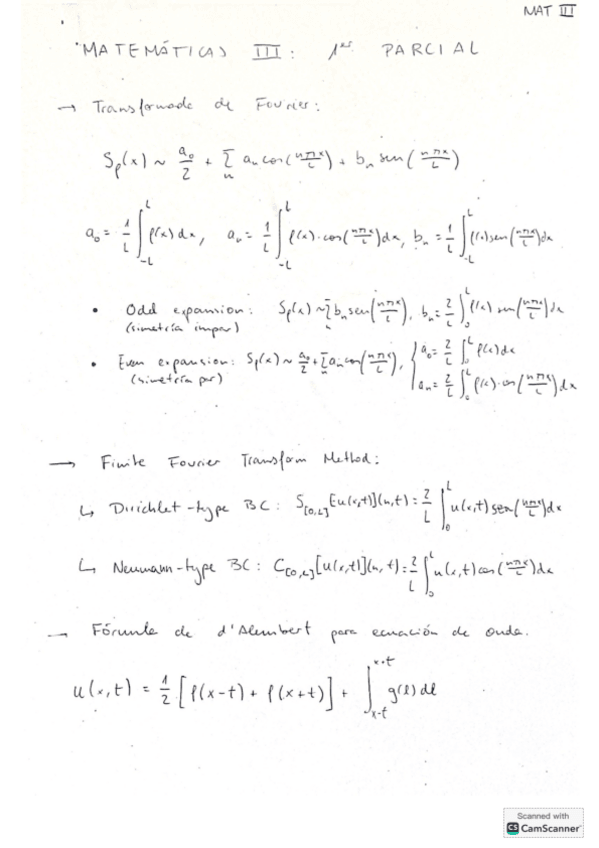 MAT III
MATEMÁTICAS III: 1er PARCIAL
→ Transformada de Fourier:
S_f(x) ~ a₀/2 + Σ_n a_n cos(nπx/L) + b_n sen(nπx/L)
a₀ = 1/L ∫_{-L}^{L} f(x) dx, a_n = 1/L ∫_{-L}^{L} f(x)·cos(nπx/L) dx, b_n = 1/L ∫_{-L}^{L} f(x) sen(nπx/L) dx
• Odd expansion: S_f(x) ~ Σ_n b_n sen(nπx/L), b_n = 2/L ∫_0^L f(x) sen(nπx/L) dx
(simetría impar)
• Even expansion: S_f(x) ~ a₀/2 + Σ_n a_n cos(nπx/L), { a₀ = 2/L ∫_0^L f(x) dx
(simetría par) a_n = 2/L ∫_0^L f(x)·cos(nπx/L) dx
→ Finite Fourier Transform Method:
↳ Dirichlet-type BC: S_[0,L][u(x,t)](n,t) = 2/L ∫_0^L u(x,t) sen(nπx/L) dx
↳ Neumann-type BC: C_[0,L][u(x,t)](n,t) = 2/L ∫_0^L u(x,t) cos(nπx/L) dx
→ Fórmula de d'Alembert para ecuación de onda.
u(x,t) = 1/2 [f(x-t) + f(x+t)] + ∫_{x-t}^{x+t} g(l) dl
Scanned with
CS CamScanner